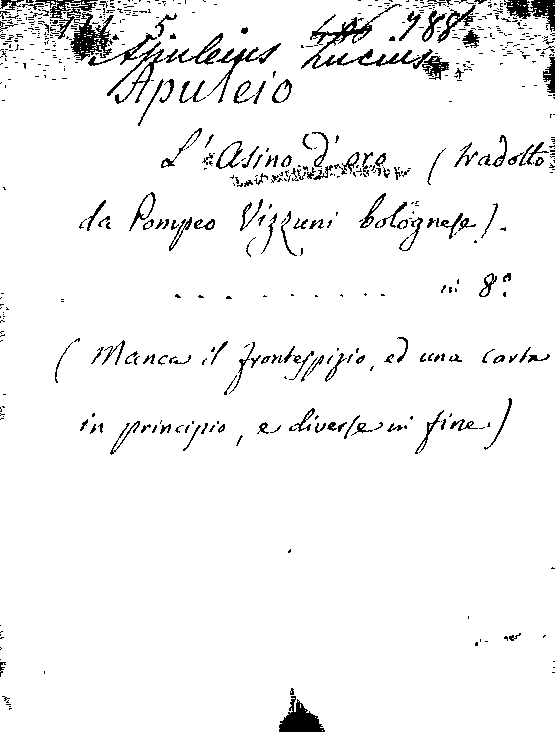 5. 486 788
Apuleius Lucius
Apuleio
L'Asino d'oro (tradotto
da Pompeo Vizzani bolognese).
. . . . . . . . . . in 8.º
(Manca il frontespizio, ed una carta
in principio, e diverse in fine.)